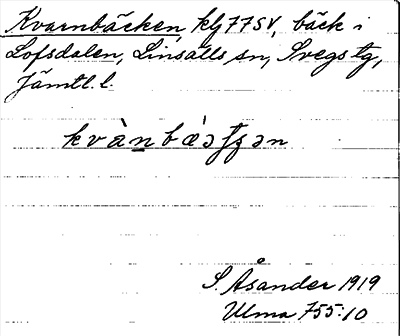 Kvarnbäcken, klj 77 SV, bäck i
Lofsdalen, Linsälls sn, Svegs tg,
Jämtl. l.
S. Åsander 1919
Ulma 755:10